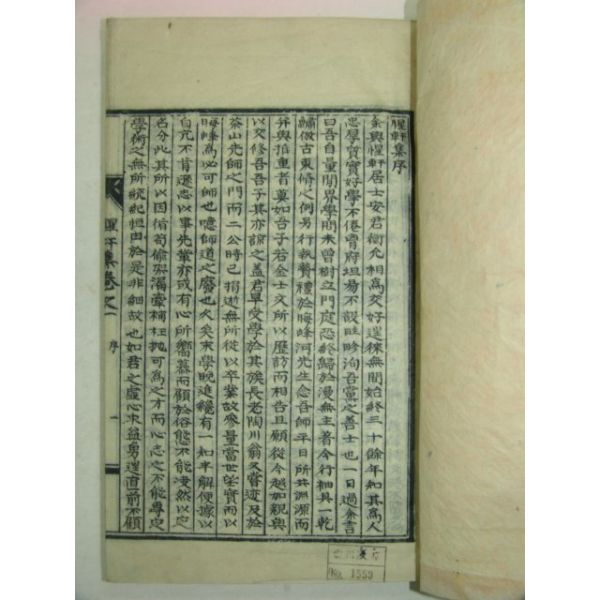 惺軒集序
余與惺軒居士安君衡允相爲交好逞徠無間始終三十餘年知其爲人
忠厚質實好學不倦胷府坦易不設畦畛洵吾黨之善士也一日過余言
曰吾自量閒界學問未曾樹立門庭恐終歸於漫無主著今行袖具一乾
鱐倣古束脩之例易行執贄禮於晦峰河先生念吾師平日所共淵源而
幷與推重者莫如吾子若金士文所以歷訪而相告且願從今越如親與
以交修吾吾子其亦諒之盖君早受學於其族長老陶川翁又嘗遊及於
山先師之門而二公時已捐逝無所從以卒業故參量當世望實而以
晦峰爲必可師也噫師道之廢也久矣末學晚進纔有一知半解便據以
自亢不肯遜志以事先輩亦或有心所嚮慕而顧於俗態不能凌然以定
名分此其所以因循苟偸架漏牽補枉抛可爲之才而心志之不能專
學術之無所統紀恒由於是非細故也如君之虛心求益勇逞直前不顧
惺軒集卷之一
序
一
No. 1559